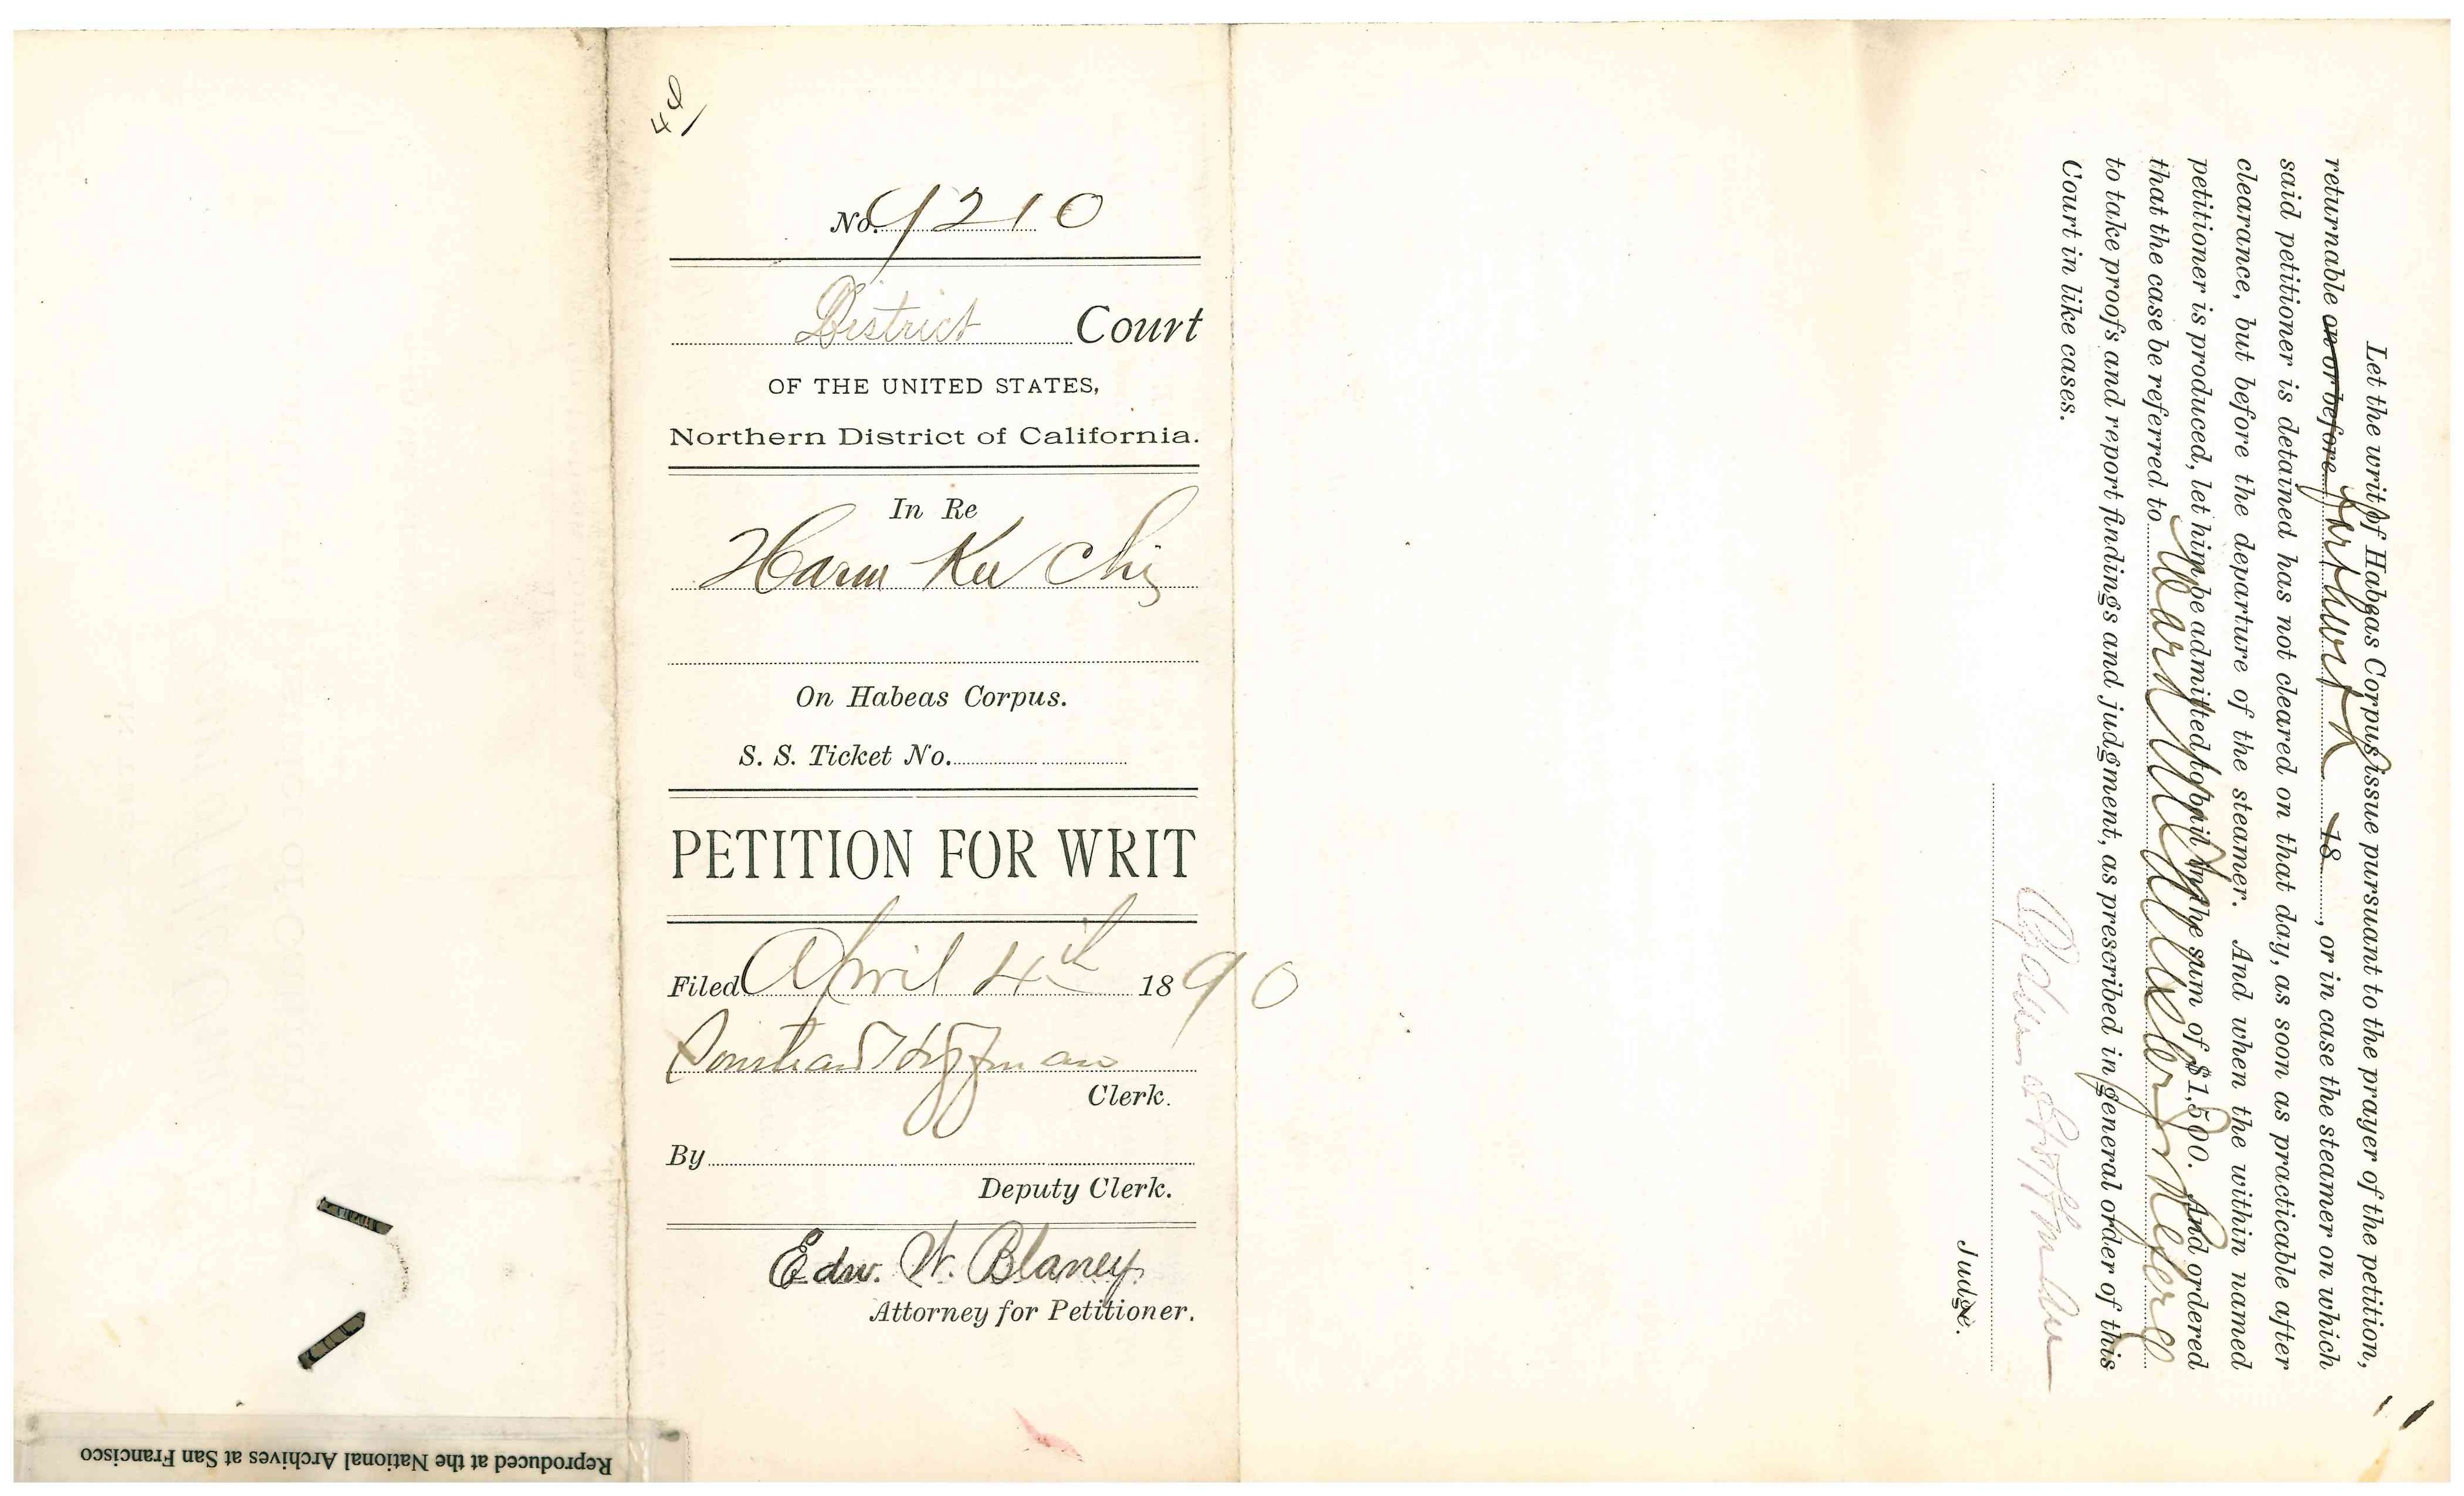 No. 9210
District Court
OF THE UNITED STATES,
Northern District of California.
In Re
Haw Kee Chy
On Habeas Corpus.
S. S. Ticket No.
PETITION FOR WRIT
Filed April 4th 1890
Southard Hoffman
Clerk.
By
Deputy Clerk.
Edw. W. Blaney
Attorney for Petitioner.
Let the writ of Habeas Corpus issue pursuant to the prayer of the petition,
returnable on or before forthwith 18 , or in case the steamer on which
said petitioner is detained has not cleared on that day, as soon as practicable after
clearance, but before the departure of the steamer. And when the within named
petitioner is produced, let him be admitted to bail in the sum of $1,500. And ordered
that the case be referred to Ward McAllister Jr Referee
to take proofs and report findings and judgment, as prescribed in general order of this
Court in like cases.
Ogden Hoffman
Judge.
Reproduced at the National Archives at San Francisco